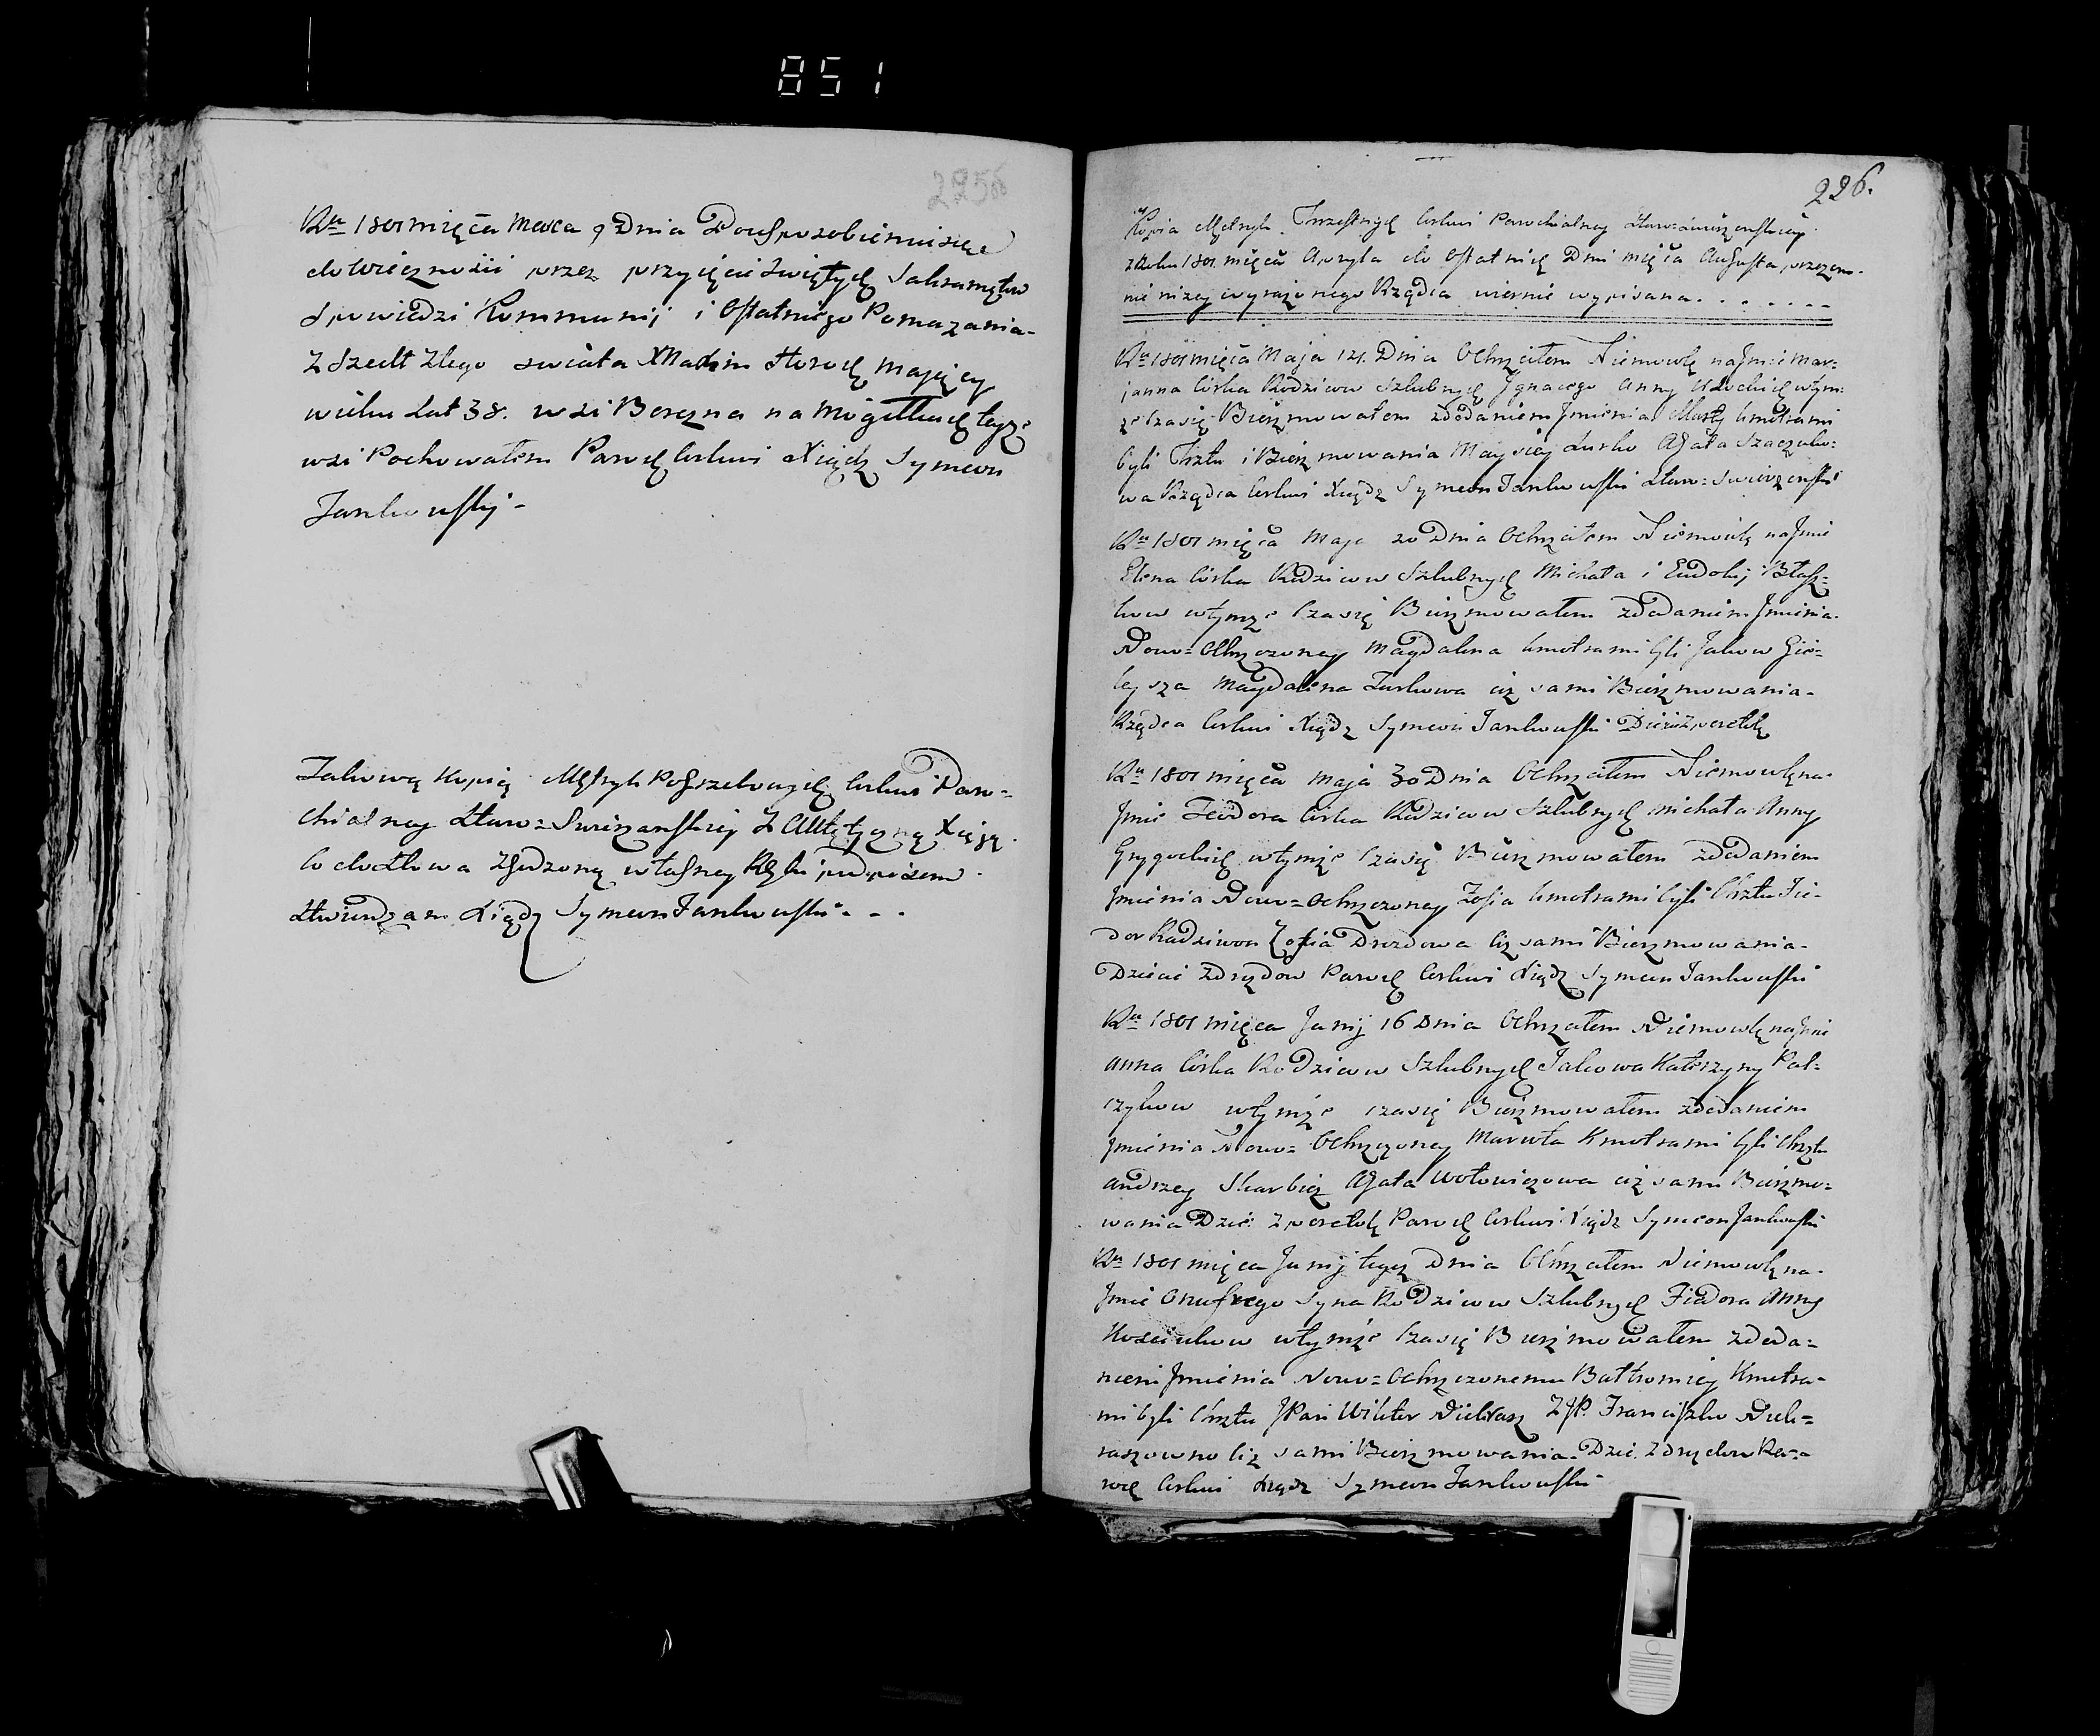 851
225
Ru 1801 mięca Marca 9 Dnia Po usposobieniu się
do wieczności przez przyięcie Swiętych Sakramętow
Spowiedzi Kommunij i Ostatniego Pomazania
Zszedł Ztego swiata Maxim mający
wieku Lat 38. wsi Berezna na Mogiłkach teyże
wsi Pochowałem Paroch Cerkwi Xiądz Symeon
Jankowskij
Takową Kopię Metryk Pogrzebowych Cerkwi Paro=
chialney Staro=Swierzanskiey Z Xięgą
Co do Słowa Zgodzoną własney Ręki podpisem
Stwierdzam Xiądz Symeon Jankowski
226.
Kopia Metryk Chrzestnych Cerkwi Parochialney Staro=Swierzenskiey
z Roku 1801 mięca Apryla do Ostatnich Dni mięca Augusta przezem=
nie niżey wyrażonego Rządca wiernie wypisana
Ru 1801 mięca Maja 121. Dnia Ochrzciłem Niemowlę na Jmie Mar=
janna Corka Rodzicow Szlubnych Jgnacego Anny wtym=
że czasię Bierzmowałem z dodaniem Jmienia Kmotrami
byli Chrztu i Bierzmowania Maysiey Agata
wa Rządca Cerkwi Xiądz Symeon Jankowski Staro=Swierzenski
Ru 1801 mięca Maja 20 Dnia Ochrzciłem Niemowlę na Jmie
Elena Corka Rodzicow Szlubnych Michała i Eudokij Błasz=
kow wtymże Czasię Bierzmowałem z dodaniem Jmienia
Nowo=Ochrzczoney Magdalena Kmotrami byli Jakow
Magdalena Turkowa ciż sami Bierzmowania
Rządca Cerkwi Xiądz Symeon Jankowski
Ru 1801 mięca Maja 30 Dnia Ochrzciłem Niemowlę na
Jmie Teodora Corka Rodzicow Szlubnych Michała Anny
wtymże Czasię Bierzmowałem z dodaniem
Jmienia Nowo=Ochrzczoney Zofia Kmotrami byli Chrztu Fie=
dor Radziwon Zofia Drozdowa Ciż sami Bierzmowania
Dziecie Paroch Cerkwi Xiądz Symeon Jankowski
Ru 1801 mięca Junij 16 Dnia Ochrzciłem Niemowlę na Jmie
Anna Corka Rodzicow Szlubnych Jakowa Katerzyny Pał=
czykow wtymże czasię Bierzmowałem z dodaniem
Jmienia Nowo=Ochrzczoney Kmotrami byli Chrztu
Andrzey Skarbicz Agata Wołowiczowa ciż sami Bierzmo=
wania Dzie: Paroch Cerkwi Xiądz Symeon Jankowski
Ru 1801 mięca Junij tegoż Dnia Ochrzciłem Niemowlę na
Jmie Onufrego Syna Rodzicow Szlubnych Fiadora Anny
wtymże Czasię Bierzmowałem z doda=
niem Jmienia Nowo=Ochrzczonemu Bałtromiey Kmotra=
mi byli Chrztu JPan Wikter Niekrasz Z JP. Franciszko Niek=
raszowno Ciż sami Bierzmowania Dzie. Pa=
roch Cerkwi Xiądz Symeon Jankowski